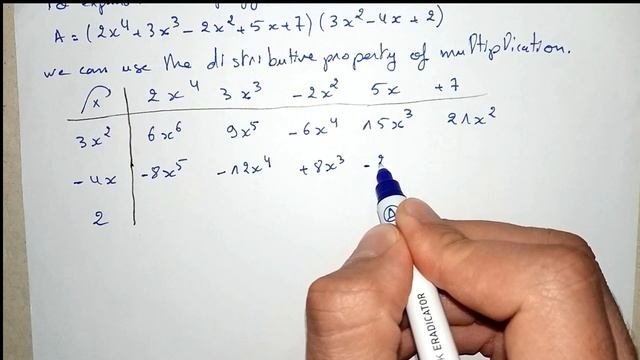 A = (2x⁴ + 3x³ - 2x² + 5x + 7) (3x² - 4x + 2)
we can use the distributive property of multiplication.
x 2x⁴ 3x³ -2x² 5x +7
3x² 6x⁶ 9x⁵ -6x⁴ 15x³ 21x²
-4x -8x⁵ -12x⁴ +8x³ -2
2
A
ERADICATOR